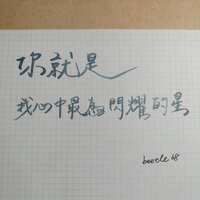 你就是
我心中最為閃耀的星
beetle 48